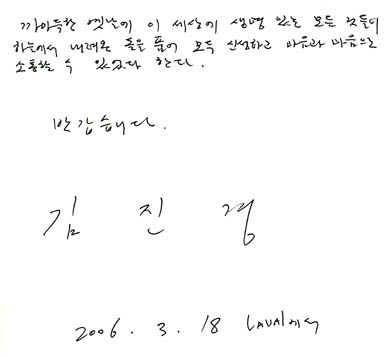 까아득한 옛날에 이 세상에 생명 있는 모든 것들이
하늘에서 내려온 돌을 품어 모두 신성하고 마음과 마음으로
소통할 수 있었다 한다.
반갑습니다.
김 진 경
2006. 3. 18 LAVAL에서